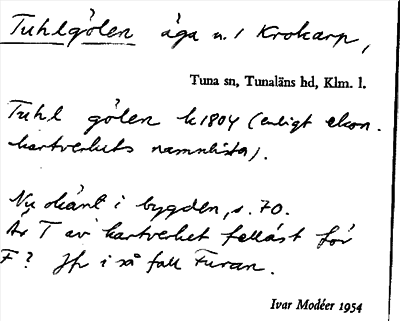 Tuhlgölen äga n. 1 Krokarp,
Tuna sn, Tunaläns hd, Klm. l.
Tuhl gölen k 1804 (enligt ekon.
kartverkets namnlista).
Nu okänt i bygden, s. 70.
Är T av kartverket felläst för
F? Jfr i så fall Furan.
Ivar Modéer 1954